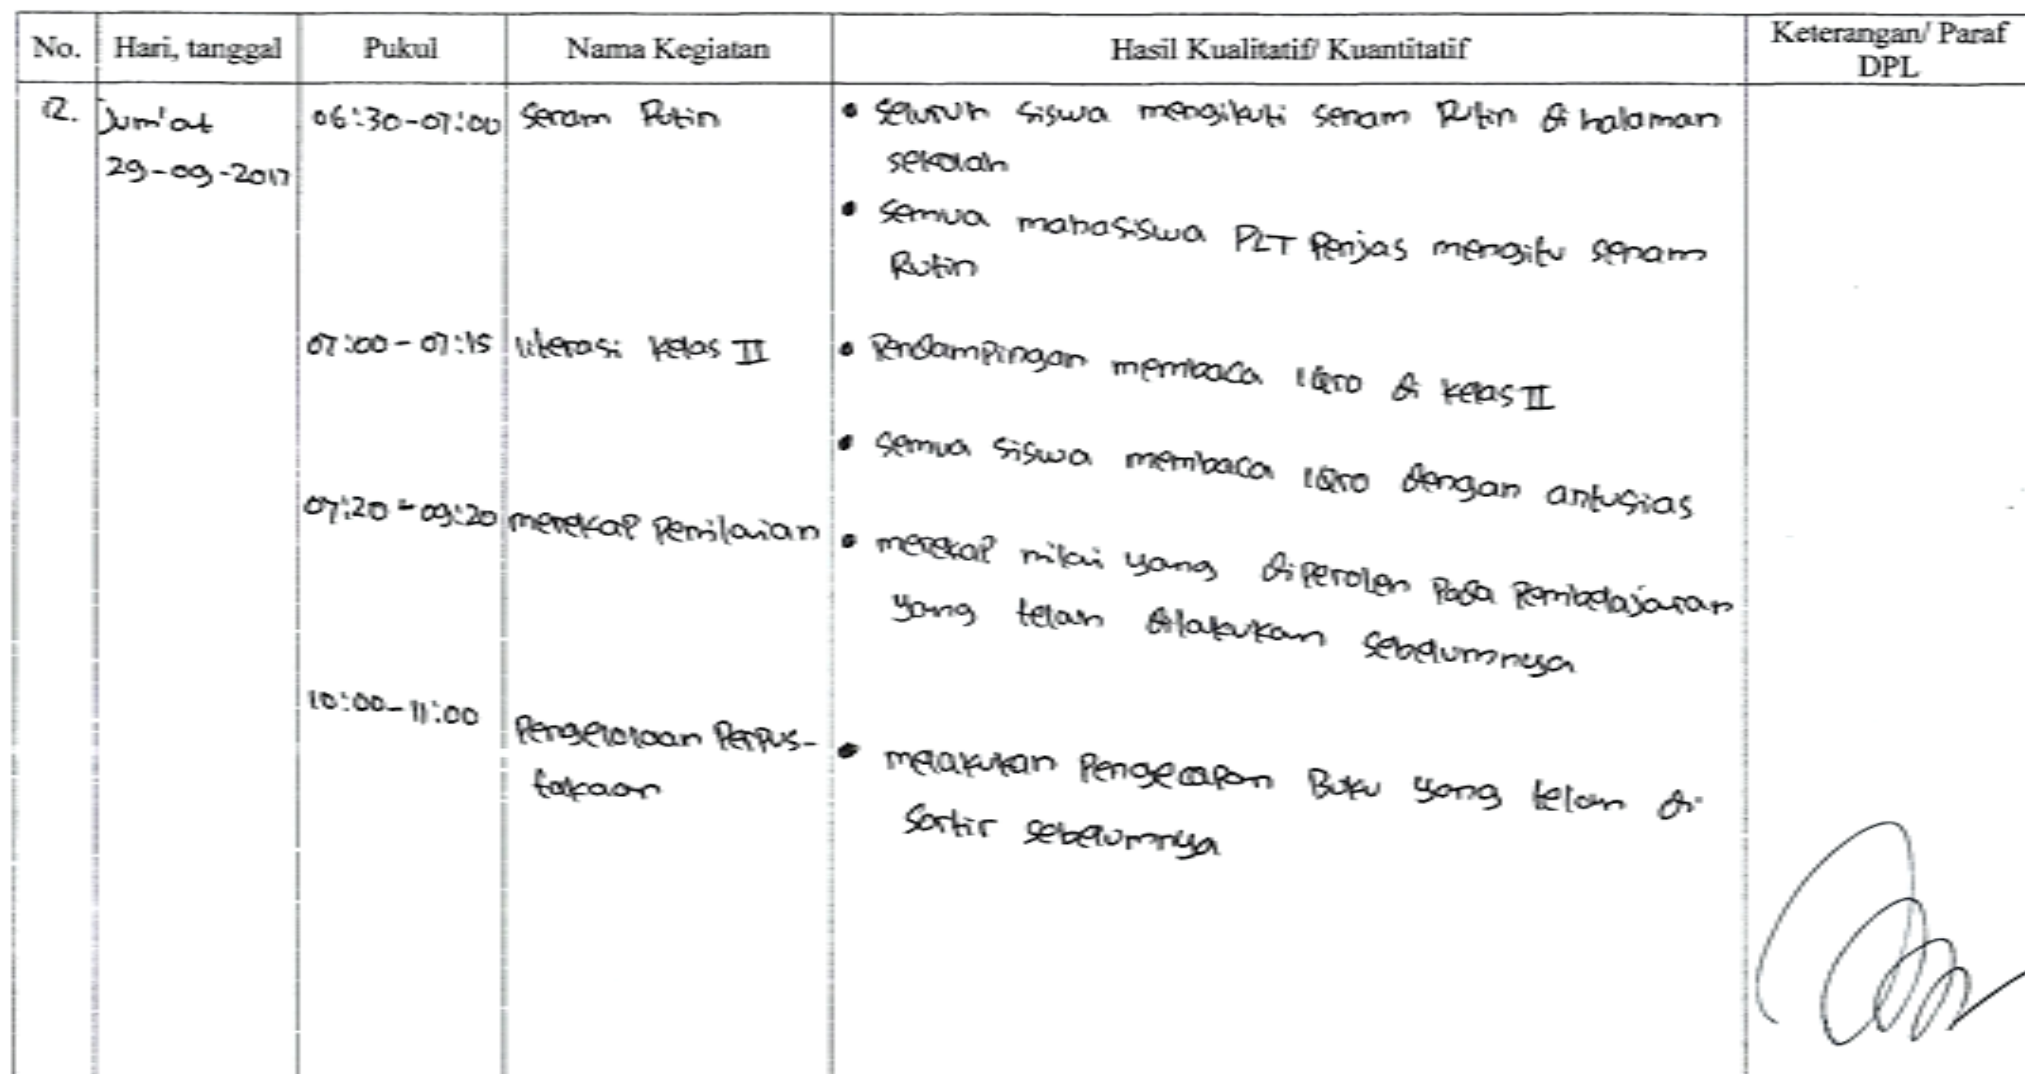 No. Hari, tanggal Pukul Nama Kegiatan Hasil Kualitatif/ Kuantitatif Keterangan/ Paraf DPL
12. Jum'at 06:30-07:00 Senam Rutin • Seluruh siswa mengikuti senam Rutin di halaman
29-09-2017 sekolah
• Semua mahasiswa PLT Penjas mengitu senam
Rutin
07:00-07:15 literasi kelas II • Pendampingan membaca IQro di kelas II
• Semua siswa membaca IQro dengan antusias
07:20-09:20 merekap Penilaian • merekap nilai yang diperoleh Pada Pembelajaran
yang telah dilakukan sebelumnya
10:00-11:00 Pengelolaan Perpus- • melakukan Pengecapan Buku yang telah di
takaan sortir sebelumnya